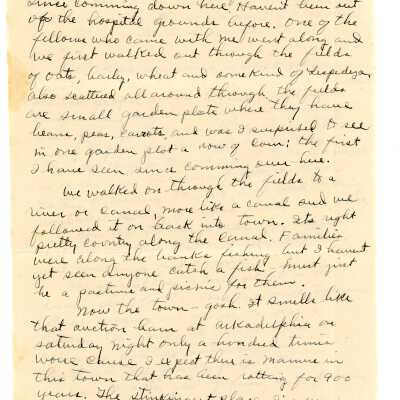 since comming down here. Haven't been out
of the hospital grounds before. One of the
fellows who came with me went along and
we first walked out through the fields
of oats, barley, wheat and some kind of Lespedeza,
also scattered all around through the fields
are small garden plots where they have
beans, peas, carrots, and was I surprised to see
in one garden plot a row of corn: the first
I have seen since comming over here.
We walked on through the fields to a
river or canal, more like a canal and we
followed it on back into town. Its right
pretty country along the canal. Families
were along the banks fishing but I haven't
yet seen anyone catch a fish, must just
be a pastime and picnic for them.
Now the town - gosh it smells like
that auction barn at Arkadelphia on
saturday night only a hundred times
worse cause I expect there is manure in
this town that has been rotting for 900
years. The stinkingest place I